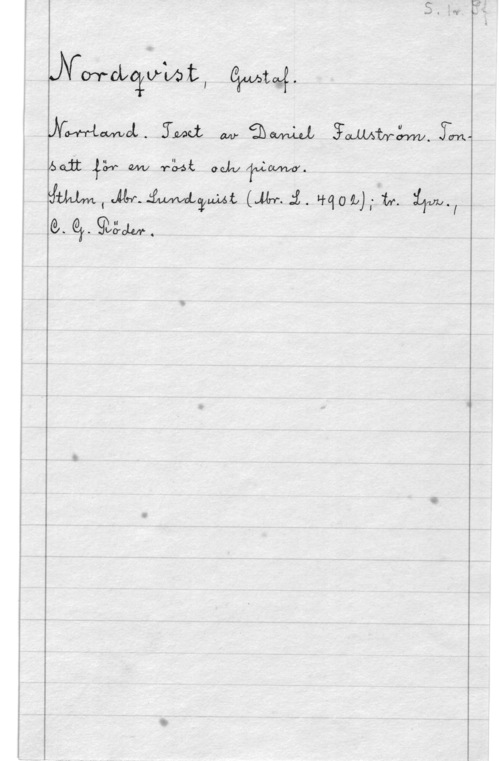 S. br.
Nordqvist, Gustaf.
Norrland. Text av Daniel Fallström. Ton-
satt för en röst och piano.
Sthlm, Abr. Lundquist (Abr. L. 4902); tr. Lpz.,
C. G. Röder.